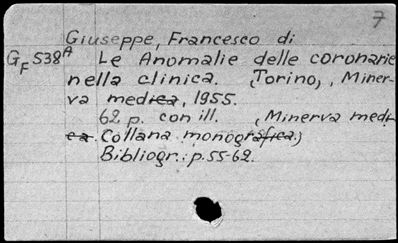 7
Giuseppe, Francesco di
G_F 538^A Le Anomalie delle coronarie
nella clinica. (Torino), Miner-
va medica, 1955.
62 p. con ill. (Minerva medi-
ca. Collana monografica.)
Bibliogr.: p. 55-62.